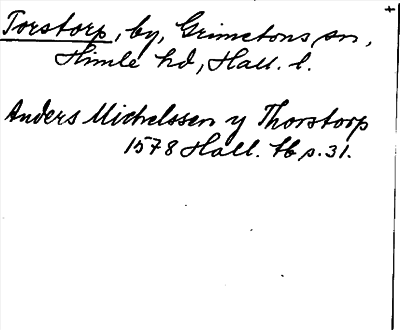 Torstorp, by, Grimetons sn,
Himle hd, Hall. l.
Anders Michelssen y Thorstorp
1578 Hall. tb s. 31.